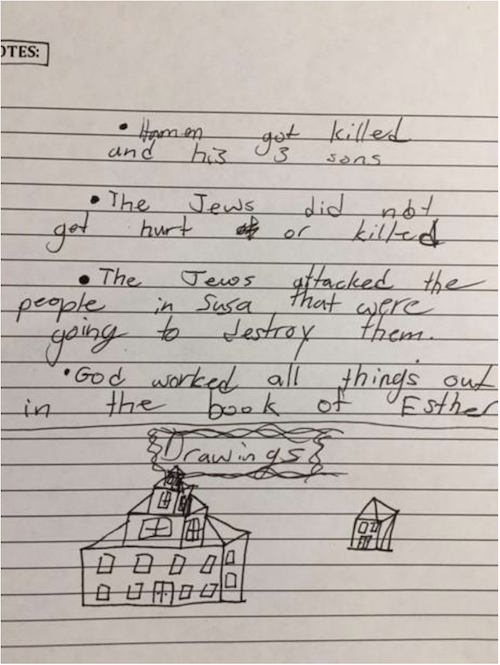 OTES:
• Hamen got killed
and his 3 sons
• The Jews did not
get hurt or killed
• The Jews attacked the
people in Susa that were
going to destroy them.
• God worked all things out
in the book of Esther
Drawings